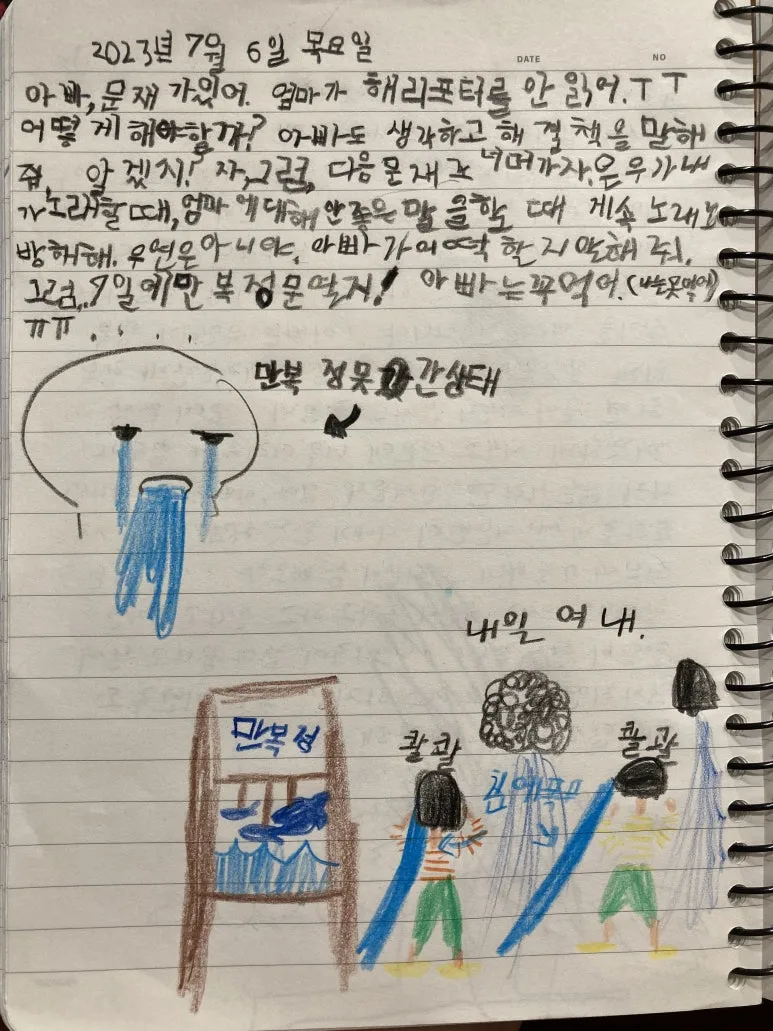 2023년 7월 6일 목요일
DATE NO
아빠, 문재 가있어. 엄마가 해리포터를 안 읽어.ㅜㅜ
어떻게 해야할까? 아빠도 생각하고 해결책을 말해
줘, 알겠지? 자,그럼, 다음문재로 너머가자.은우가내
가노래할때,엄마에대해안좋은말을할 때 게속 노래
방해해. 우연은아니야. 아빠가어떡할지말해줘.
그럼, 7일에만복정문열지! 아빠는꾸먹어.(나는못먹어)
ㅠㅠ.....
만복 정못간상태
내일 여 내.
만복정
콸콸
콸콸